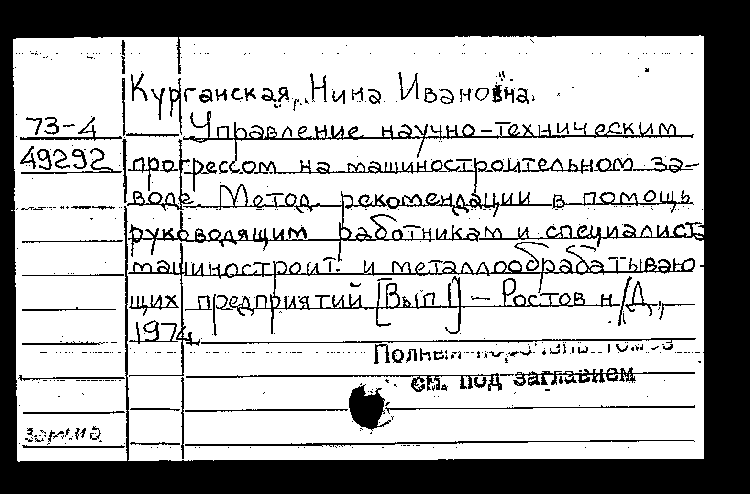 Курганская, Нина Ивановна.
73-4
Управление научно-техническим
49292
прогрессом на машиностроительном за-
воде. Метод. рекомендации в помощь
руководящим работникам и специалиста
машиностроит. и металлообрабатываю-
щих предприятий. [Вып 1] – Ростов н/Д.,
1974.
Полный перечень томов
см. под заглавием